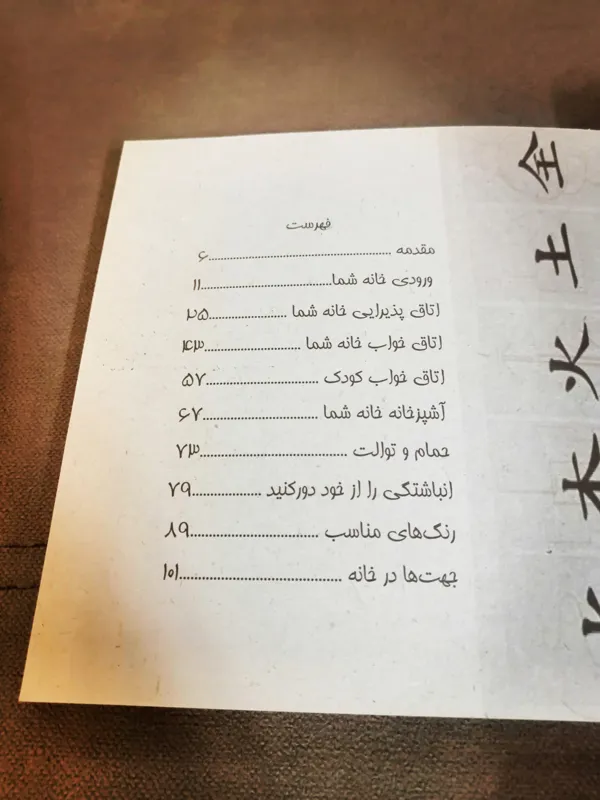 فهرست
مقدمه ........................................................ ۶
ورودی خانه شما........................................ ۱۱
اتاق پذیرایی خانه شما ........................ ۲۵
اتاق خواب خانه شما ............................. ۴۳
اتاق خواب کودک .................................. ۵۷
آشپزخانه خانه شما ................................ ۶۷
حمام و توالت ......................................... ۷۳
انباشتگی را از خود دورکنید ................... ۷۹
رنگ‌های مناسب .................................... ۸۹
جهت‌ها در خانه ............................................ ۱۰۱
全
土
火
木